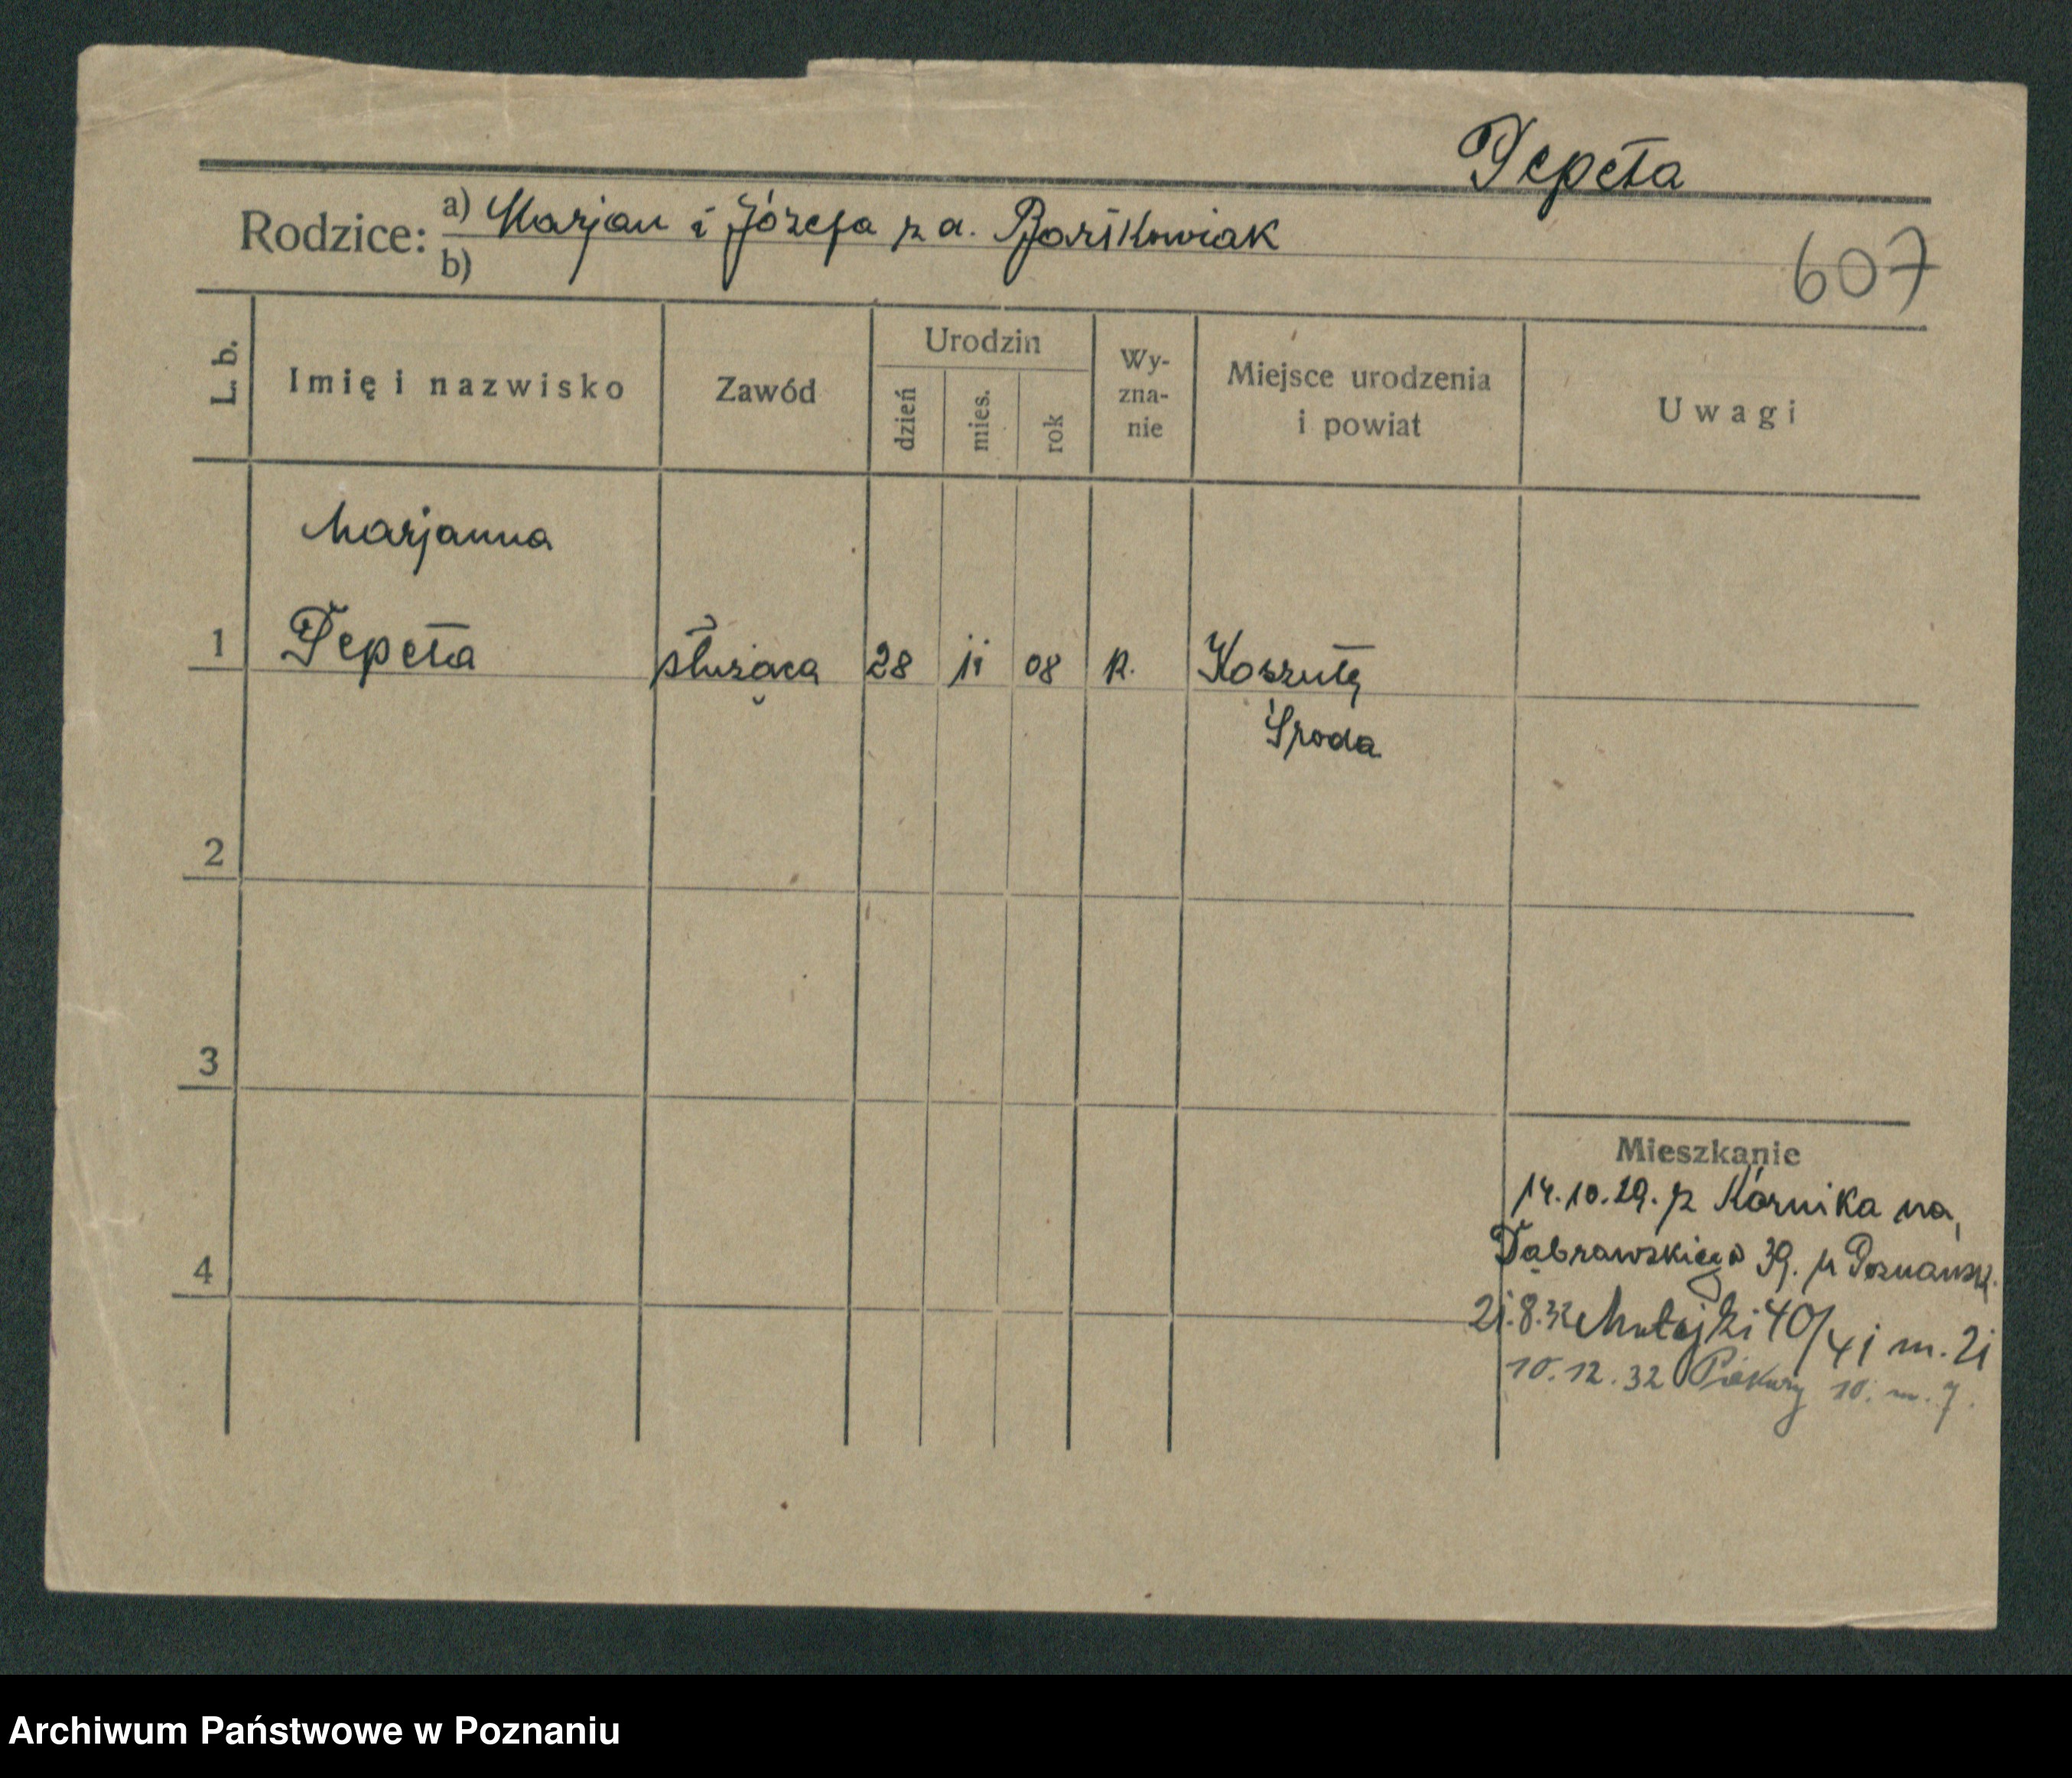 Tepeta
Rodzice: a) Marjan i Józefa z d. Bartkowiak
b)
607
L. b.
Imię i nazwisko
Zawód
Urodzin
dzień
mies.
rok
Wy-
zna-
nie
Miejsce urodzenia
i powiat
Uwagi
Marjanna
1 Tepeta służąca 28 11 08 k. Koszuty
Środa
2
3
4
Mieszkanie
14.10.29. z Kórnika na
Dąbrowskiego 39.
21.8.32 Matejki 40/41 m. 21
10.12.32 Piekary 10. m. 7.
Archiwum Państwowe w Poznaniu